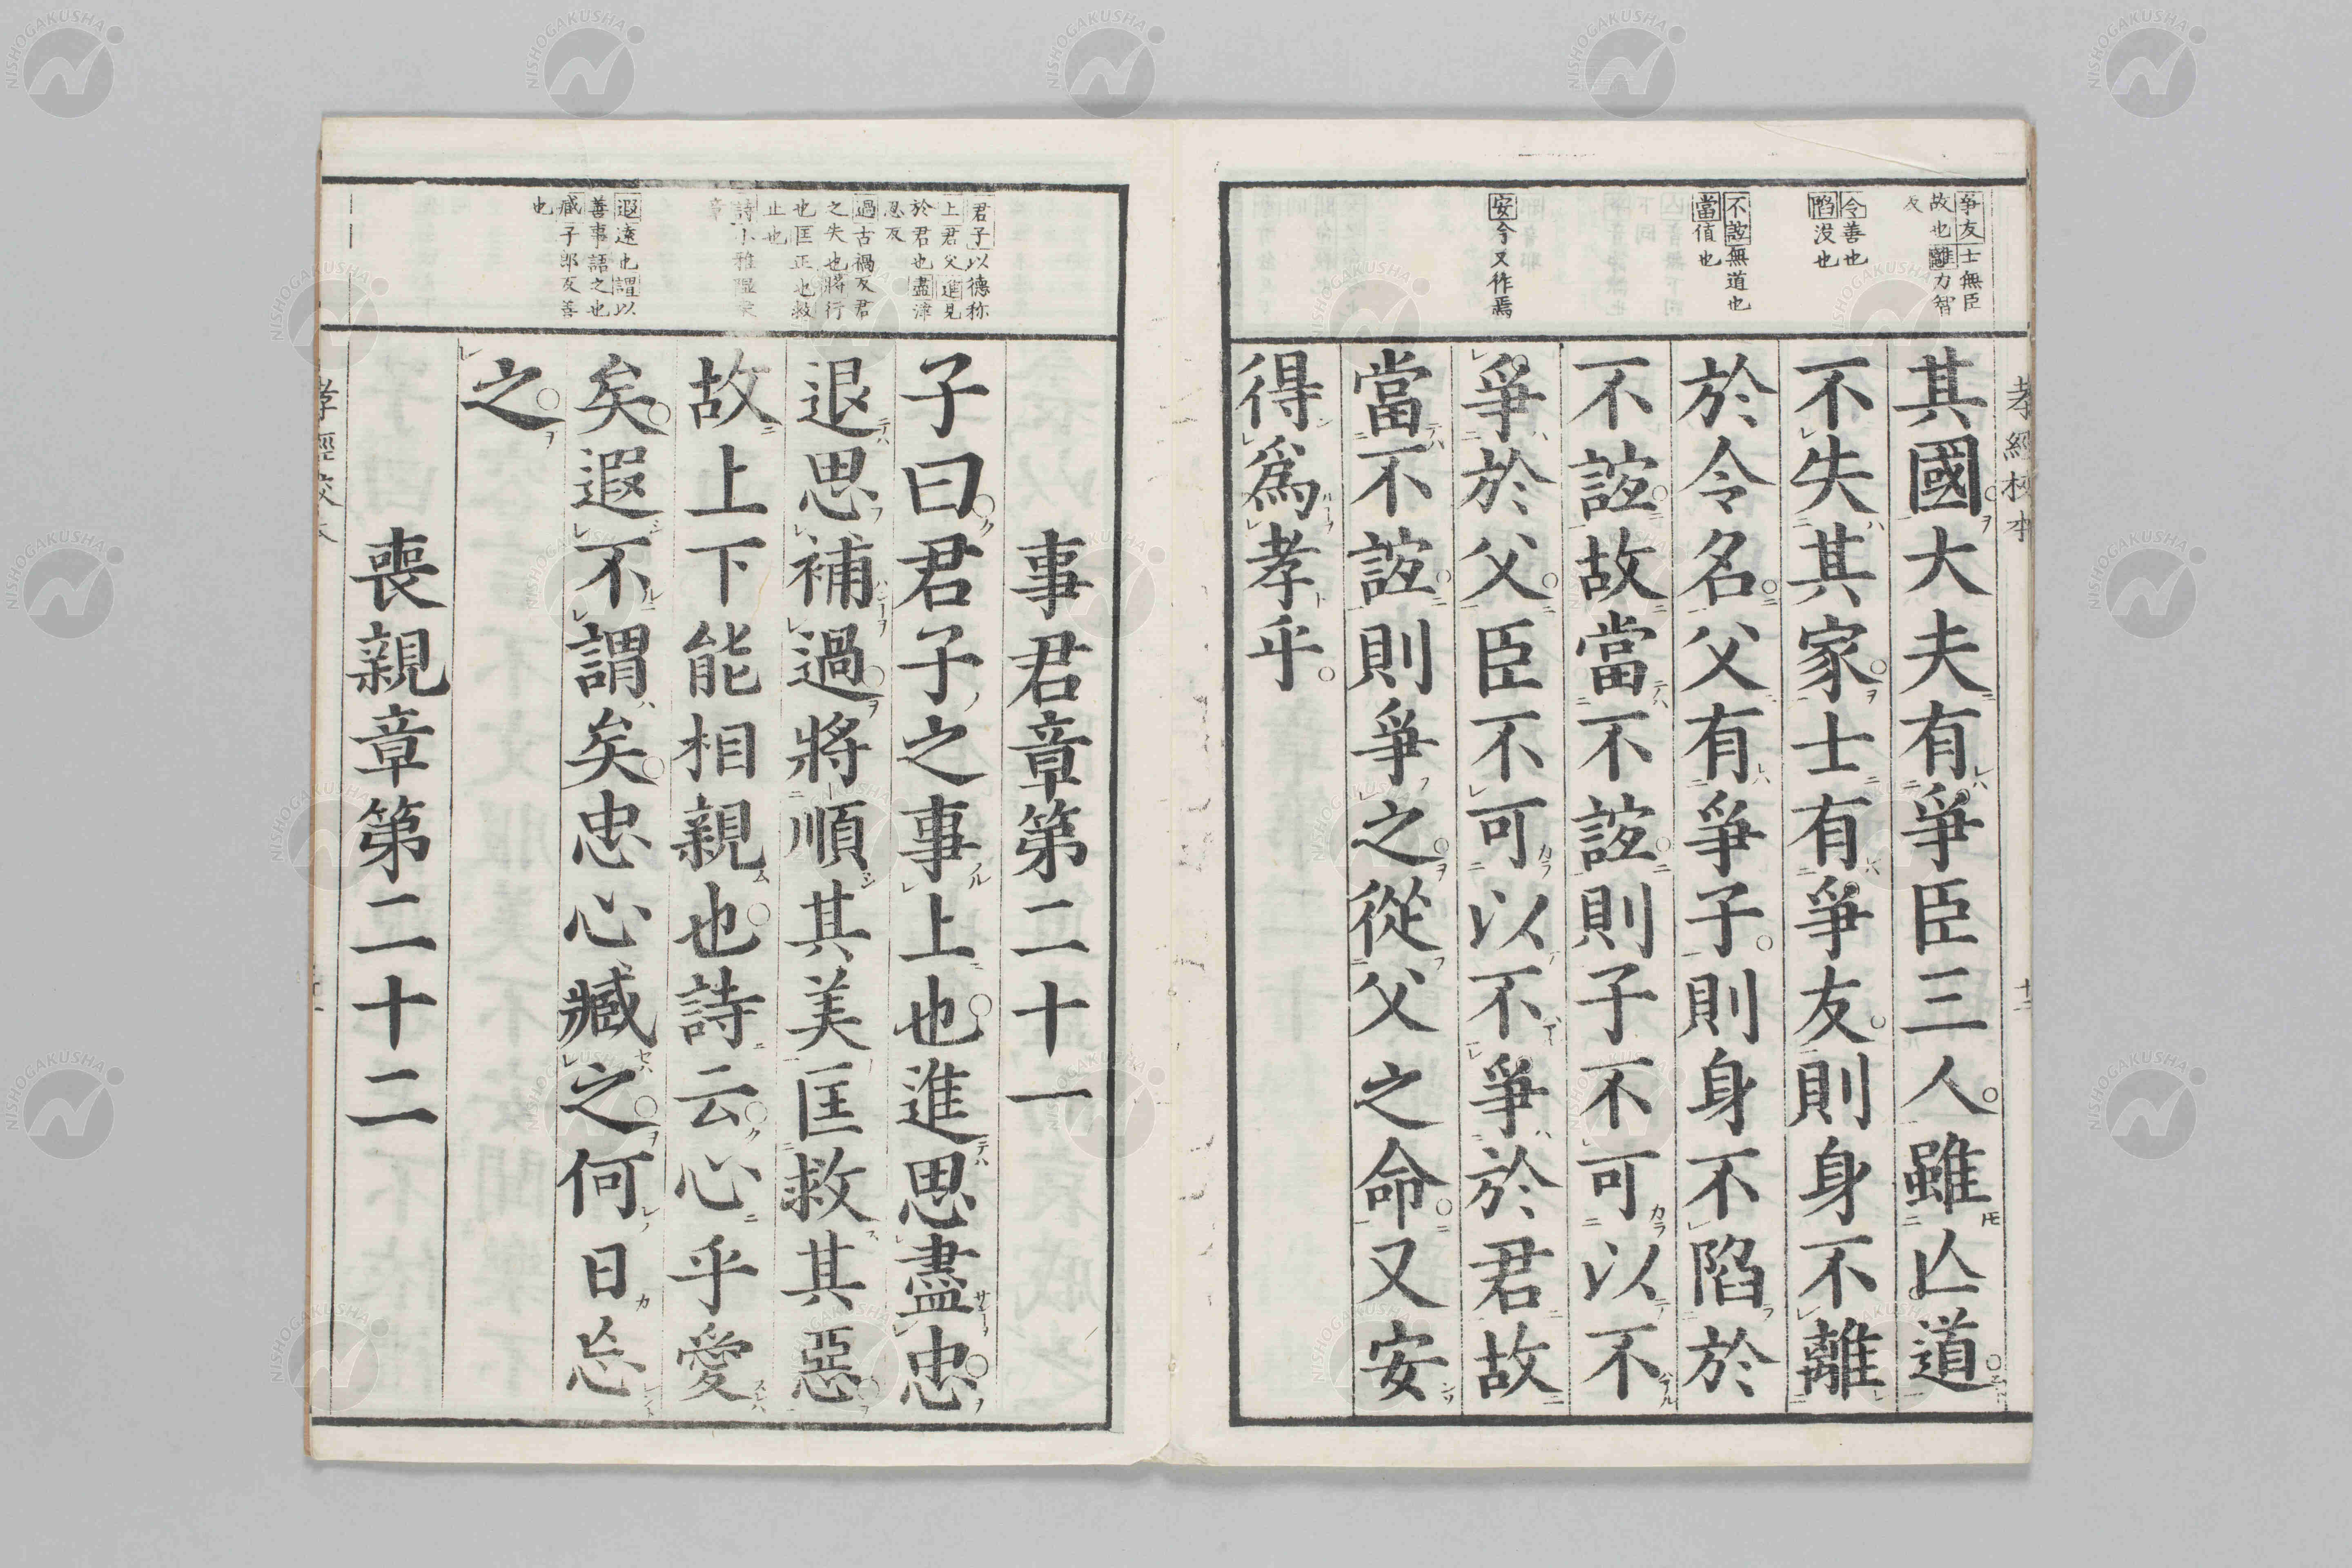 孝經校本
十二
爭友士無臣
故也離力智
反
令善也
陷没也
不誼無道也
當值也
安今文作焉
其國大夫有爭臣三人雖亾道
不失其家士有爭友則身不離
於令名父有爭子則身不陷於
不誼故當不誼則子不可以不
爭於父臣不可以不爭於君故
當不誼則爭之從父之命又安
得爲孝乎
君子以德称
上君父進見
於君也盡津
忍反
過古禍反君
之失也將行
也匡正也救
止也
詩小雅隰桑
章
遐遠也謂以
善事語之也
臧子郎反善
也
事君章第二十一
子曰君子之事上也進思盡忠
退思補過將順其美匡救其惡
故上下能相親也詩云心乎愛
矣遐不謂矣忠心臧之何日忘
之
喪親章第二十二
NISHOGAKUSHA